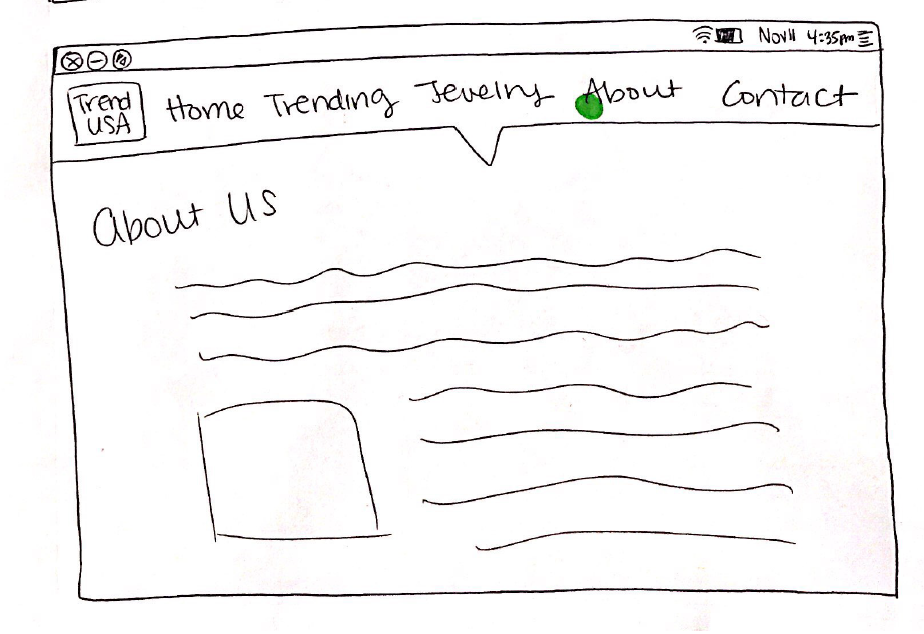 Nov 11 4:35pm
Trend
USA
Home Trending Jewelry About Contact
About Us